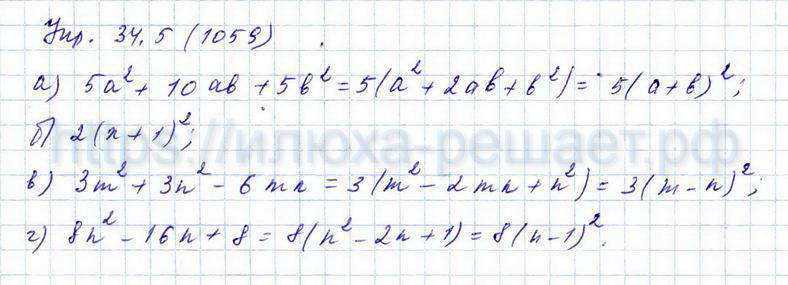 Упр. 34.5 (1059)
а) 5a² + 10ab + 5b² = 5(a² + 2ab + b²) = 5(a+b)²;
б) 2(x+1)²;
https://илюха-решает.рф
в) 3m² + 3n² - 6mn = 3(m² - 2mn + n²) = 3(m-n)²;
г) 8n² - 16n + 8 = 8(n² - 2n + 1) = 8(n-1)².